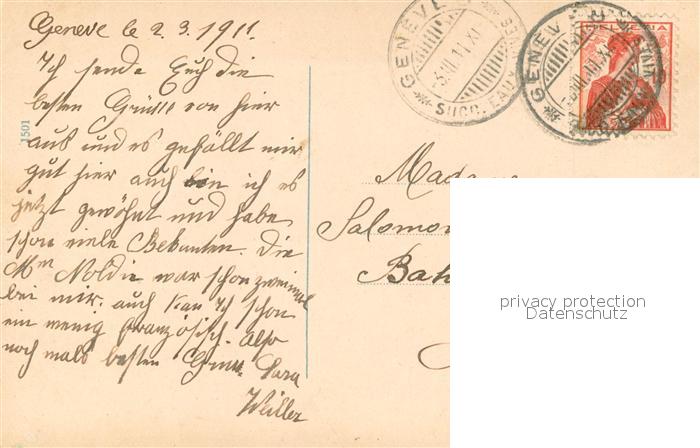 Geneve le 2.3.1911.
Ich sende Euch die
besten Grüsse von hier
aus und es gefällt mir
gut hier auch bin ich es
jetzt gewöhnt und habe
schon viele Bekanten. Die
Mme Noldie war schon zweimal
bei mir. auch kan Ich schon
ein wenig französisch. Also
noch mals besten Gruss. Sara
Weiller
1501
GENEVE
SUCC. EAUX VIVES
GENEV
HELVETIA
Madame
Salomon
Bah
privacy protection
Datenschutz